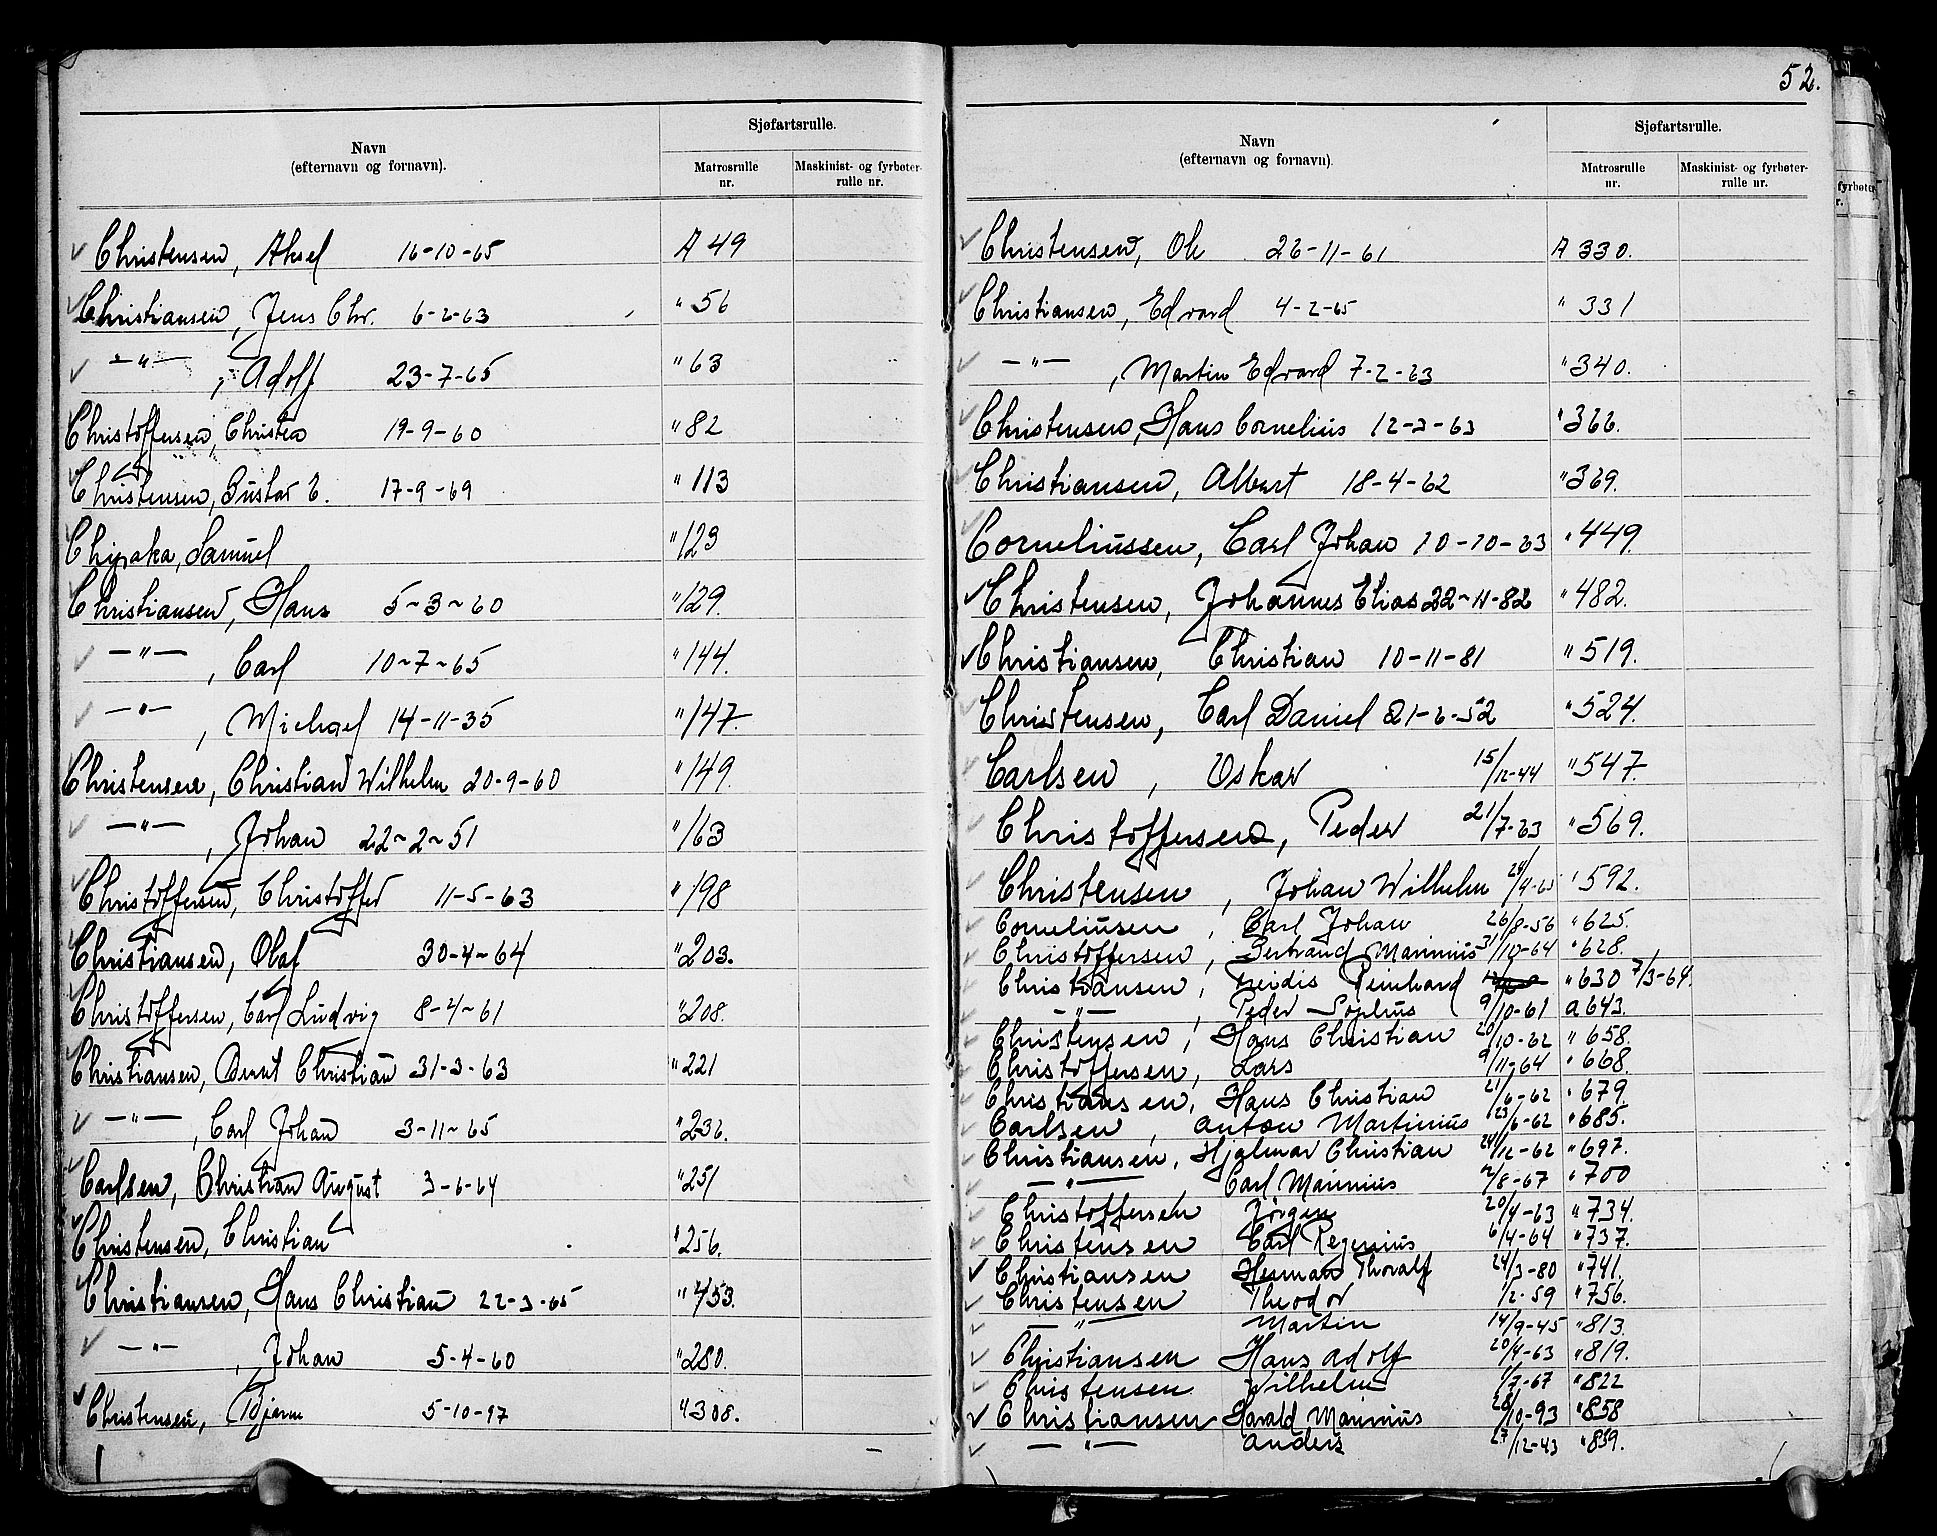 52.
Navn
(efternavn og fornavn).
Sjøfartsrulle.
Matrosrulle nr.
Maskinist- og fyrbøter-rulle nr.
Christensen, Aksel 16-10-65 A 49
Christiansen, Jens Chr. 6-2-63 " 56
—"— , Adolf 23-7-65 " 63
Christoffersen, 19-9-60 " 82
Christensen, Gustav E. 17-9-69 " 113
Samuel " 123
Christiansen, Hans 5-3-60 " 129.
—"— , Carl 10-7-65 " 144.
—"— , Michael 14-11-35 " 147.
Christensen, Christian Wilhelm 20-9-60 " 149.
—"— , Johan 22-2-51 " 163
Christoffersen, Christoffer 11-5-63 " 198
Christiansen, Olaf 30-4-64 " 203.
Christoffersen, Carl Ludvig 8-4-61 " 208.
Christiansen, Bernt Christian 31-3-63 " 221
—"— , Carl Johan 3-11-65 " 236.
Carlsen, Christian August 3-6-64 " 251
Christensen, Christian " 256.
Christiansen, Hans Christian 22-3-65
—"— , Johan 5-4-60 " 280.
Christensen, Bjarne 5-10-97 " 308.
Navn
(efternavn og fornavn).
Sjøfartsrulle.
Matrosrulle nr.
Maskinist- og fyrbøter-rulle nr.
fyrbøter
r.
Christensen, Ole 26-11-61 A 330.
Christiansen, Edvard 4-2-65 " 331
—"— , Martin Edvard 7-2-63 " 340.
Christensen, Hans Cornelius 12-3-63 " 366.
Christiansen, Albert 18-4-62 " 369.
Corneliussen, Carl Johan 10-10-63 " 449.
Christensen, Johannes Elias 22-11-82 " 482.
Christiansen, Christian 10-11-81 " 519.
Christensen, Carl Daniel 21-6-52 " 524.
Carlsen, Oskar 15/12-44 " 547.
Christoffersen, Peder 21/7-63 " 569.
Christensen, Johan Wilhelm 24/9-65 " 592.
Corneliusen, Carl Johan 26/8-56 " 625.
Christoffersen, Gertrand Marinius 31/10-64 " 628.
Christiansen, Reinhard " 630 7/3-64.
—"— Peder Sophus 9/10-61 a 643.
Christensen, Hans Christian 20/10-62 " 658.
Christoffersen, Lars 9/11-64 " 668.
Christiansen, Hans Christian 21/6-62 " 679.
Carlsen, Anton Martinius 23/6-62 " 685.
Christiansen, Hjalmar Christian 24/12-62 " 697.
—"— Carl Marinius 2/8-67 " 700
Christoffersen Jörgen 20/4-63 " 734.
Christensen Carl Regenius 6/4-64 " 737.
Christiansen Herman Thoralf 24/3-80 " 741.
Christensen Theodor 1/2-59 " 756.
—"— Martin 14/9-45 " 813.
Christiansen Hans Adolf 20/4-63 " 819.
Christensen Wilhelm 1/7-67 " 822
Christiansen Harald Marinius 28/10-93 " 858
—"— Anders 27/12-43 " 859.